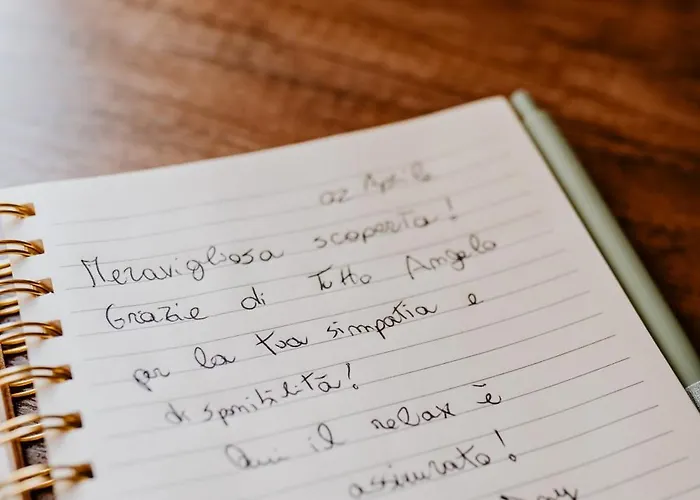 02 Aprile
Meravigliosa scoperta!
Grazie di tutto Angelo
per la tua simpatia e
disponibilità!
Qui il relax è
assicurato!